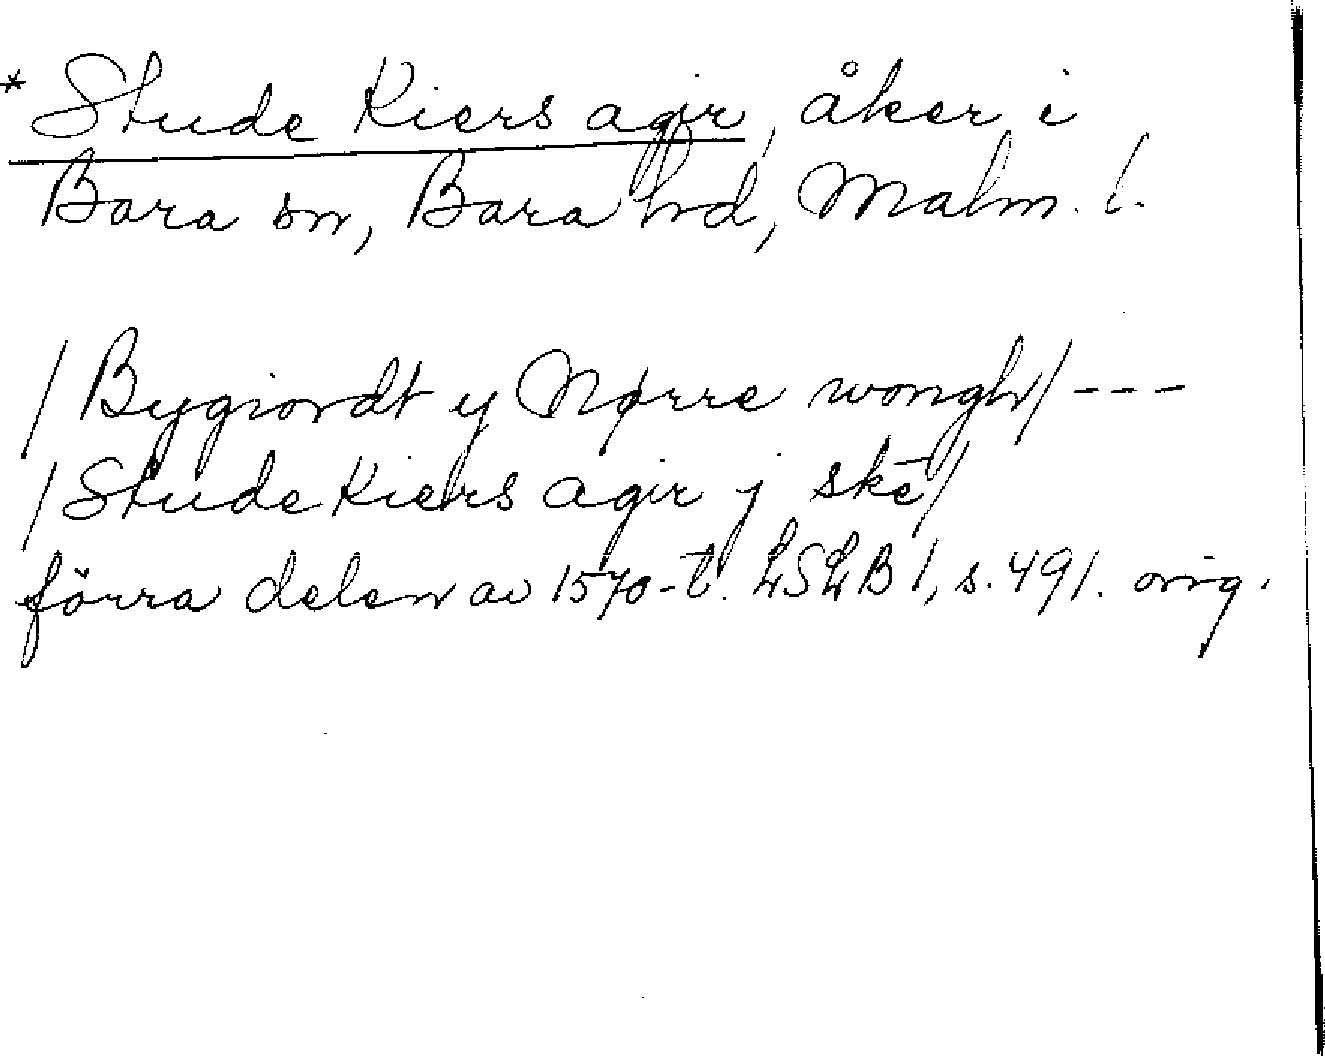 * Stude Kiers agir, åker i
Bara sn, Bara hd, Malm. l.
/Bygiordt y Nørre wongh/ ---
/Stude Kiers agir j skē/
förra delen av 1570-t. LSLB 1, s. 491. orig.